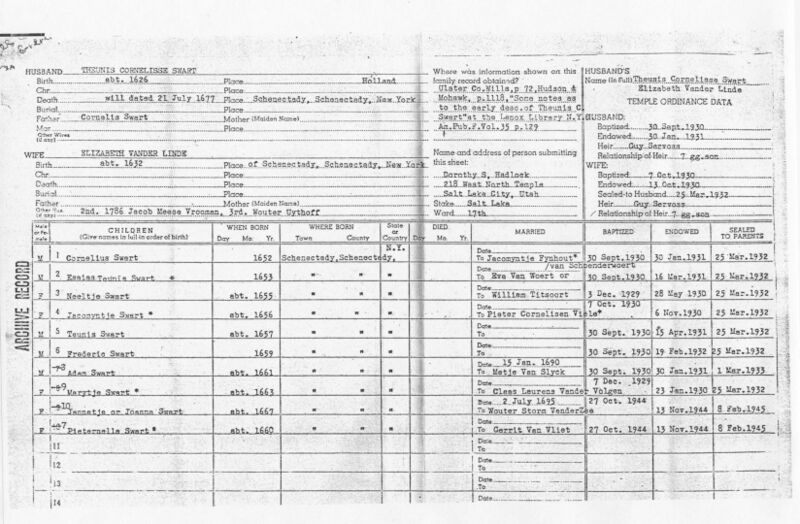 HUSBAND THEUNIS CORNELISSE SWART
Birth abt. 1626 Place Holland
Chr. Place
Death will dated 21 July 1677 Place Schenectady, Schenectady, New York
Burial Place
Father Cornelis Swart Mother (Maiden Name)
Mar Place
Other Wives (if any)
WIFE ELIZABETH VANDER LINDE
Birth abt. 1632 Place of Schenectady, Schenectady, New York
Chr Place
Death Place
Burial Place
Father Mother (Maiden Name)
Other Hus. (if any) 2nd. 1786 Jacob Meese Vrooman, 3rd. Wouter Uythoff
Where was information shown on this family record obtained?
Ulster Co.Wills,p 72,Hudson &
Mohawk, p.118,"Some notes as
to the early desc.of Theunis C.
Swart"at the Lenox Library N.Y.
Am.Pub.F.Vol.35 p.129
Name and address of person submitting this sheet:
Dorothy S. Hadlock
218 West North Temple
Salt Lake City, Utah
Stake Salt Lake
Ward 17th
HUSBAND'S
Name (in Full) Theunis Cornelisse Swart
Elizabeth Vander Linde
TEMPLE ORDINANCE DATA
HUSBAND:
Baptized 30 Sept.1930
Endowed: 30 Jan. 1931
Heir Guy Servoss
Relationship of Heir 7 gg.son
WIFE:
Baptized 7 Oct.1930
Endowed: 13 Oct.1930
Sealed-to Husband 25 Mar.1932
Heir Guy Servoss
Relationship of Heir 7 gg.son
Male or Female CHILDREN (Give names in full in order of birth) WHEN BORN Day Mo. Yr. WHERE BORN Town County State or Country DIED Day Mo. Yr. MARRIED BAPTIZED ENDOWED SEALED TO PARENTS
M 1 Cornelius Swart 1652 Schenectady,Schenectady, N.Y. Date To Jacomyntje Fynhout* 30 Sept.1930 30 Jan.1931 25 Mar.1932
M 2 Esaias Teunis Swart * 1653 " " " Date /van Schoenderwoert To Eva Van Woert or 30 Sept.1930 16 Mar.1931 25 Mar.1932
F 3 Neeltje Swart abt. 1655 " " " Date To William Titsoort 3 Dec. 1929 28 May 1930 25 Mar.1932
F 4 Jacomyntje Swart * abt. 1656 " " " Date To Pieter Cornelisen Viele* 7 Oct.1930 6 Nov.1930 25 Mar.1932
M 5 Teunis Swart abt. 1657 " " " Date To 30 Sept.1930 15 Apr.1931 25 Mar.1932
M 6 Frederic Swart 1659 " " " Date To 30 Sept.1930 19 Feb.1932 25 Mar.1932
M 7 8 Adam Swart abt. 1661 " " " Date 15 Jan. 1690 To Metje Van Slyck 30 Sept.1930 30 Jan.1931 1 Mar.1933
F 9 Marytje Swart * abt. 1663 " " " Date To Claes Laurens Vander Volgen 7 Dec. 1929 23 Jan.1930 25 Mar.1932
F 10 Jannetje or Joanna Swart abt. 1667 " " " Date 2 July 1695 To Wouter Storm VanderZee 27 Oct.1944 13 Nov.1944 8 Feb.1945
F 7 Pieternella Swart * abt. 1660 " " " Date To Gerrit Van Vliet 27 Oct.1944 13 Nov.1944 8 Feb.1945
11 Date To
12 Date To
13 Date To
14 Date
ARCHIVE RECORD